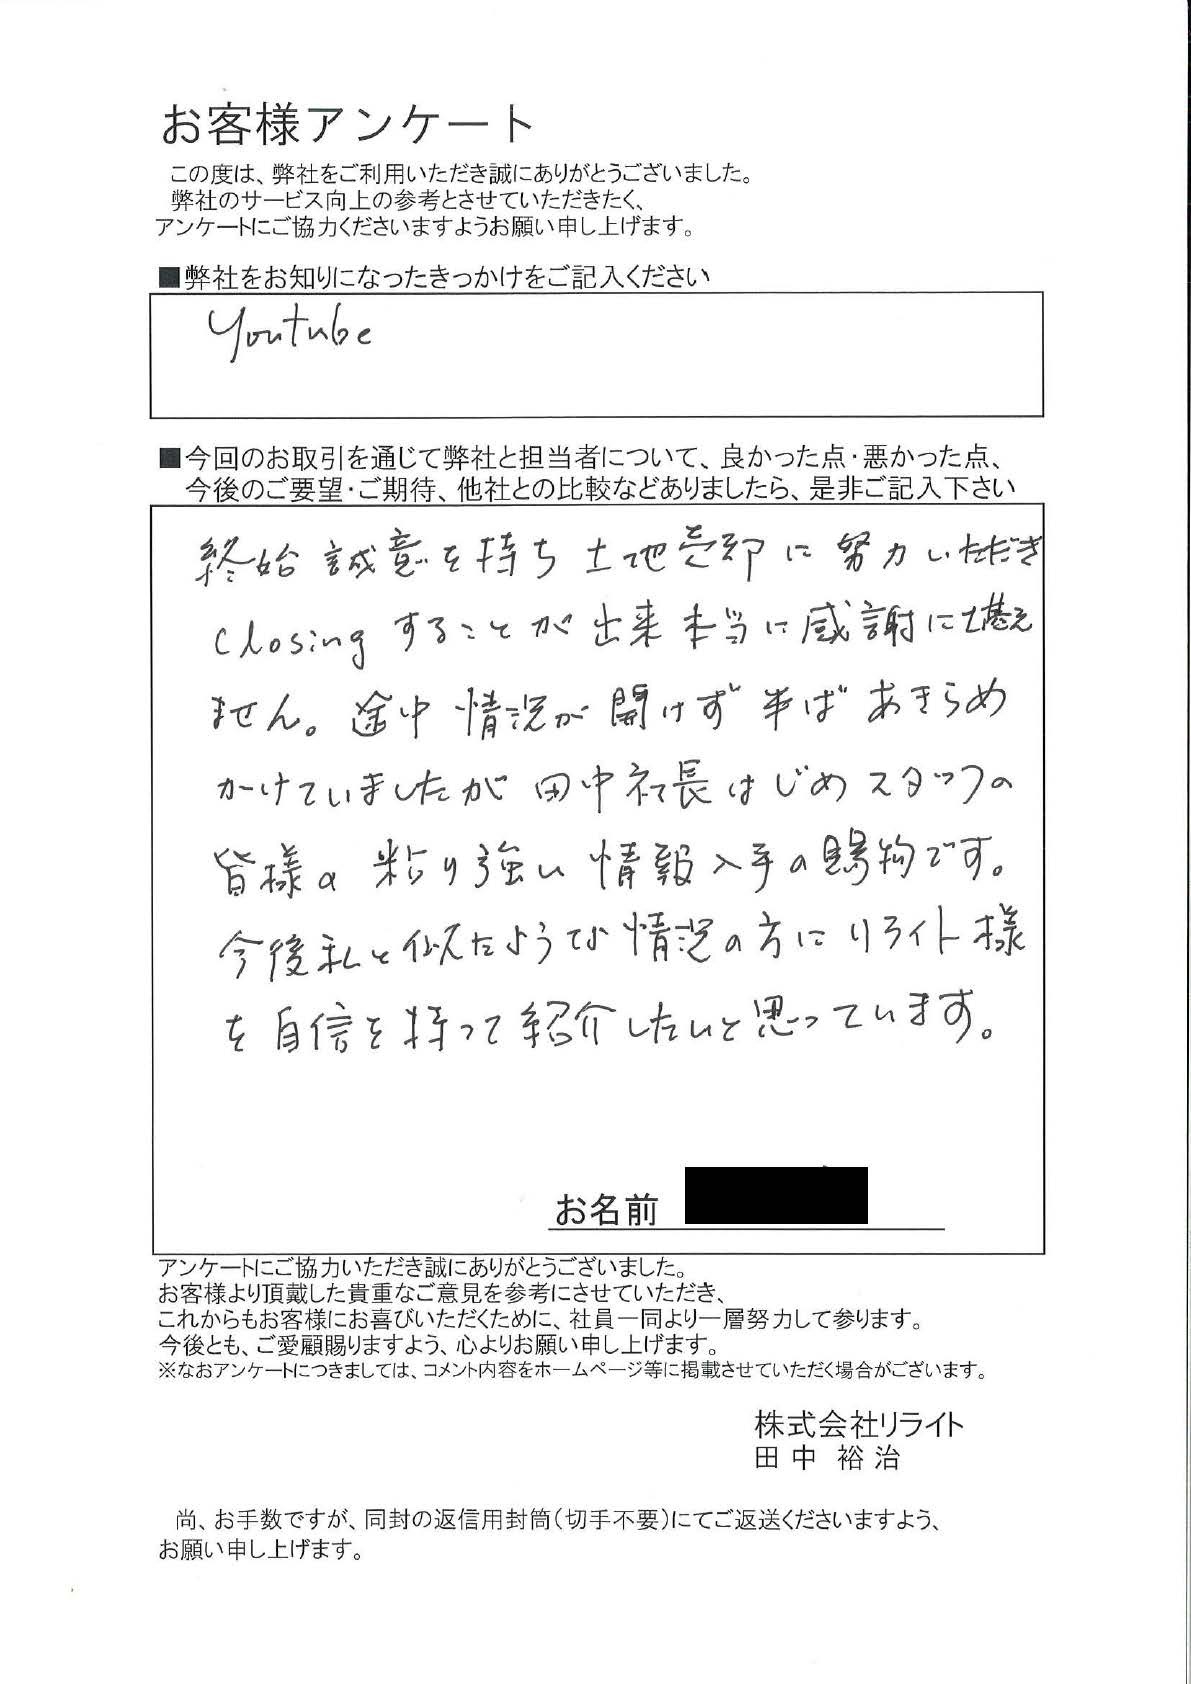 お客様アンケート
この度は、弊社をご利用いただき誠にありがとうございました。
弊社のサービス向上の参考とさせていただきたく、
アンケートにご協力くださいますようお願い申し上げます。
■弊社をお知りになったきっかけをご記入ください
Youtube
■今回のお取引を通じて弊社と担当者について、良かった点・悪かった点、
今後のご要望・ご期待、他社との比較などありましたら、是非ご記入下さい
終始誠意を持ち土地売却に努力いただき
Closingすることが出来本当に感謝に堪え
ません。途中情況が開けず半ばあきらめ
かけていましたが田中社長はじめスタッフの
皆様の粘り強い情報入手の賜物です。
今後私と似たような情況の方にリライト様
を自信を持って紹介したいと思っています。
お名前
アンケートにご協力いただき誠にありがとうございました。
お客様より頂戴した貴重なご意見を参考にさせていただき、
これからもお客様にお喜びいただくために、社員一同より一層努力して参ります。
今後とも、ご愛顧賜りますよう、心よりお願い申し上げます。
※なおアンケートにつきましては、コメント内容をホームページ等に掲載させていただく場合がございます。
株式会社リライト
田中 裕治
尚、お手数ですが、同封の返信用封筒(切手不要)にてご返送くださいますよう、
お願い申し上げます。